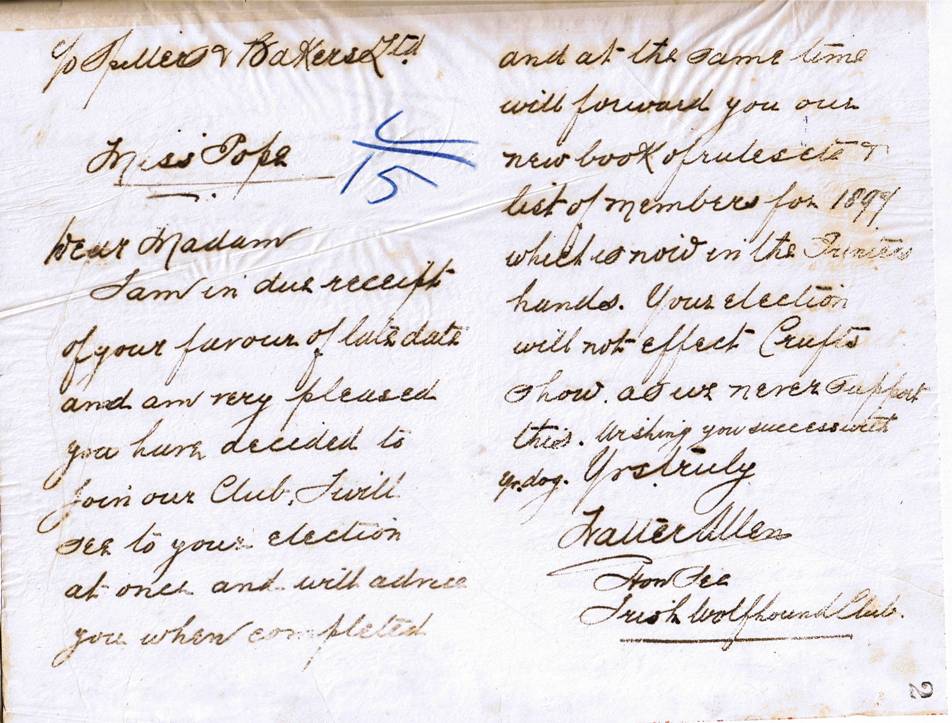 c/o Spillers & Bakers Ltd.
Miss Pope
15
Dear Madam
I am in due receipt
of your favour of late date
and am very pleased
you have decided to
join our Club. I will
see to your election
at once and will advise
you when completed
and at the same time
will forward you our
new book of rules etc &
list of members for 1899
which is now in the Printers
hands. Your election
will not effect Crufts
Show. as we never support
this. Wishing you success with
yr. dog. Yrs. truly
Walter Allen
Hon Sec
Irish Wolfhound Club.
2